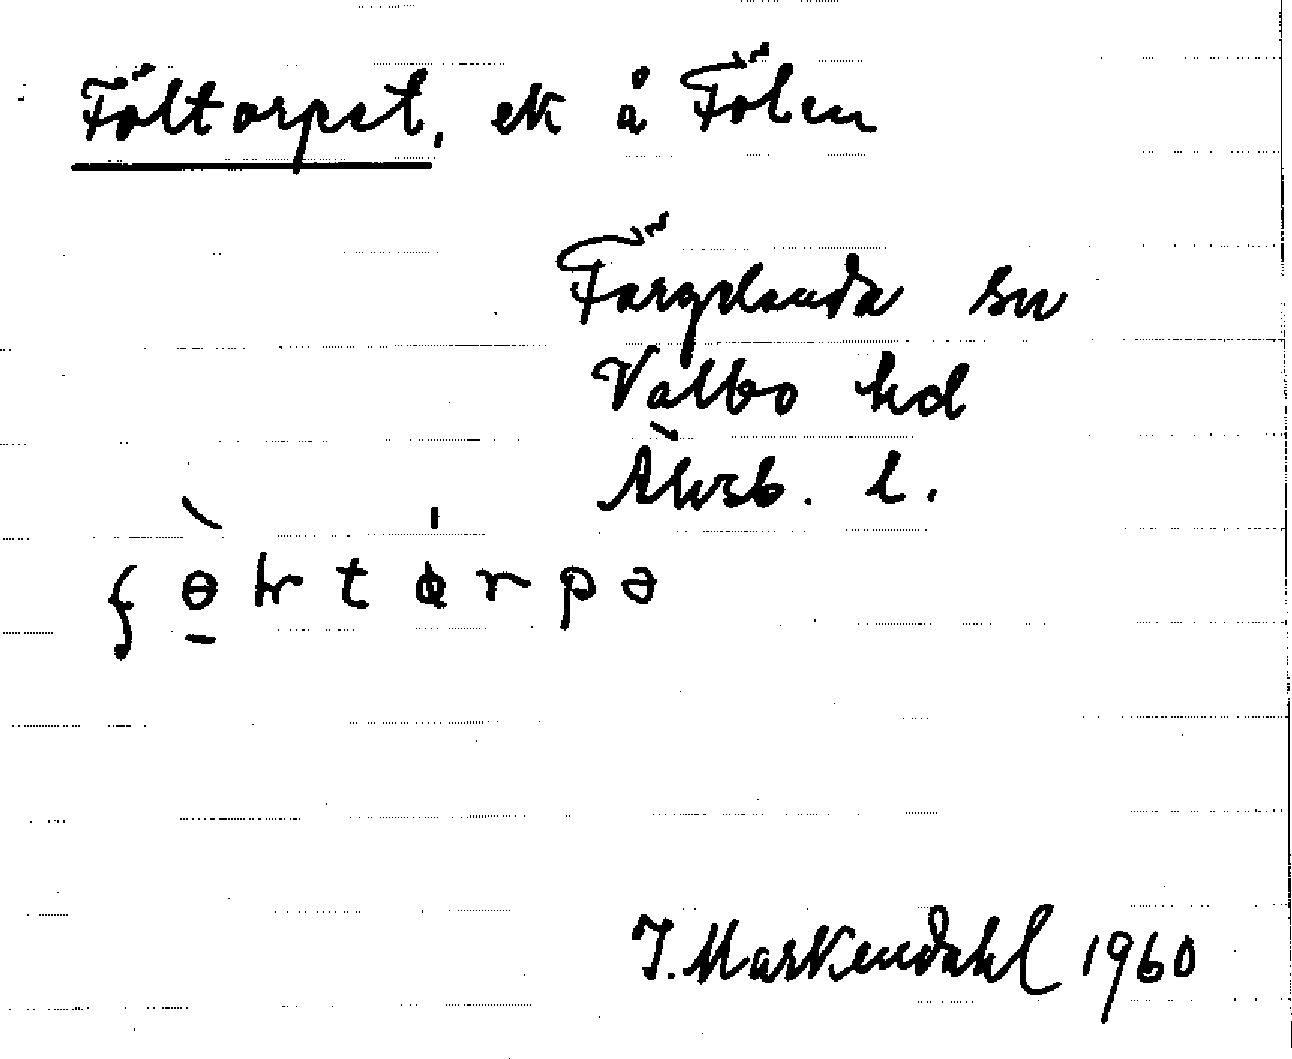 Föltorpet, ek å Fölen
Färgelanda sn
Valbo hd
Älvsb. l.
J. Markendahl 1960